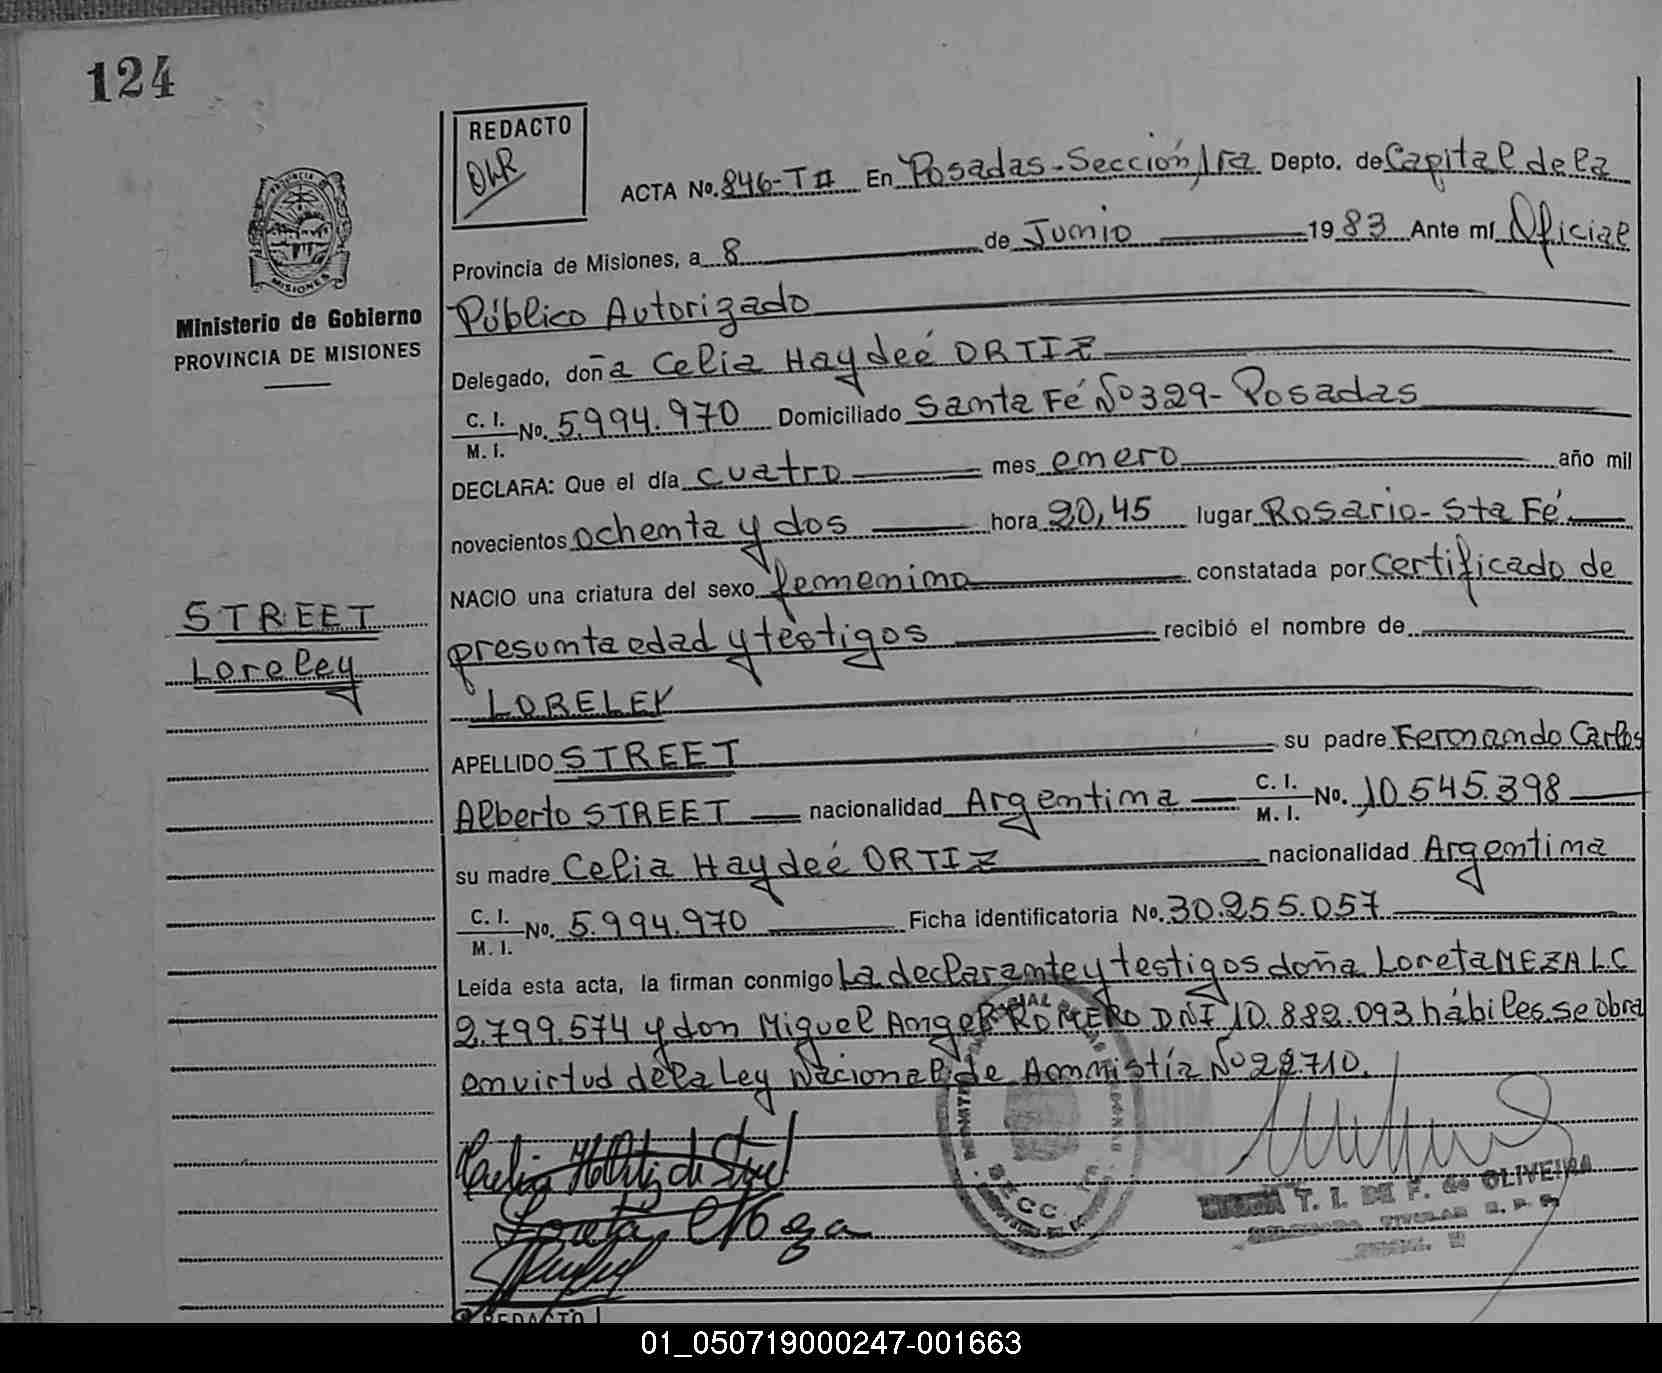 124
REDACTO
OLR
ACTA No. 846-TII En Posadas-Sección 1ra Depto. de Capital de la
PROVINCIA DE
MISIONES
Ministerio de Gobierno
PROVINCIA DE MISIONES
Provincia de Misiones, a 8 de Junio 1983 Ante mí Oficial
Público Autorizado
Delegado, doña Celia Haydeé ORTIZ
C. I.
M. I. No. 5.994.970 Domiciliado Santa Fé Nº 329- Posadas
DECLARA: Que el día cuatro mes enero año mil
novecientos ochenta y dos hora 20,45 lugar Rosario-Sta Fé.
NACIO una criatura del sexo femenino constatada por Certificado de
presunta edad y testigos recibió el nombre de
STREET
Loreley
LORELEY
APELLIDO STREET su padre Fernando Carlos
Alberto STREET nacionalidad Argentina C. I. M. I. No. 10.545.398
su madre Celia Haydeé ORTIZ nacionalidad Argentina
C. I.
M. I. No. 5.994.970 Ficha identificatoria No. 30.255.057
Leída esta acta, la firman conmigo La declarante y testigos doña Loreta MEZA L.C
2.799.574 y don Miguel Angel ROMERO DNI 10.882.093 hábiles.se obra
en virtud de la Ley Nacional de Ammistía Nº 22710.
SECC.
T. I. DE F. de OLIVEIRA
REDACTO
01_050719000247-001663